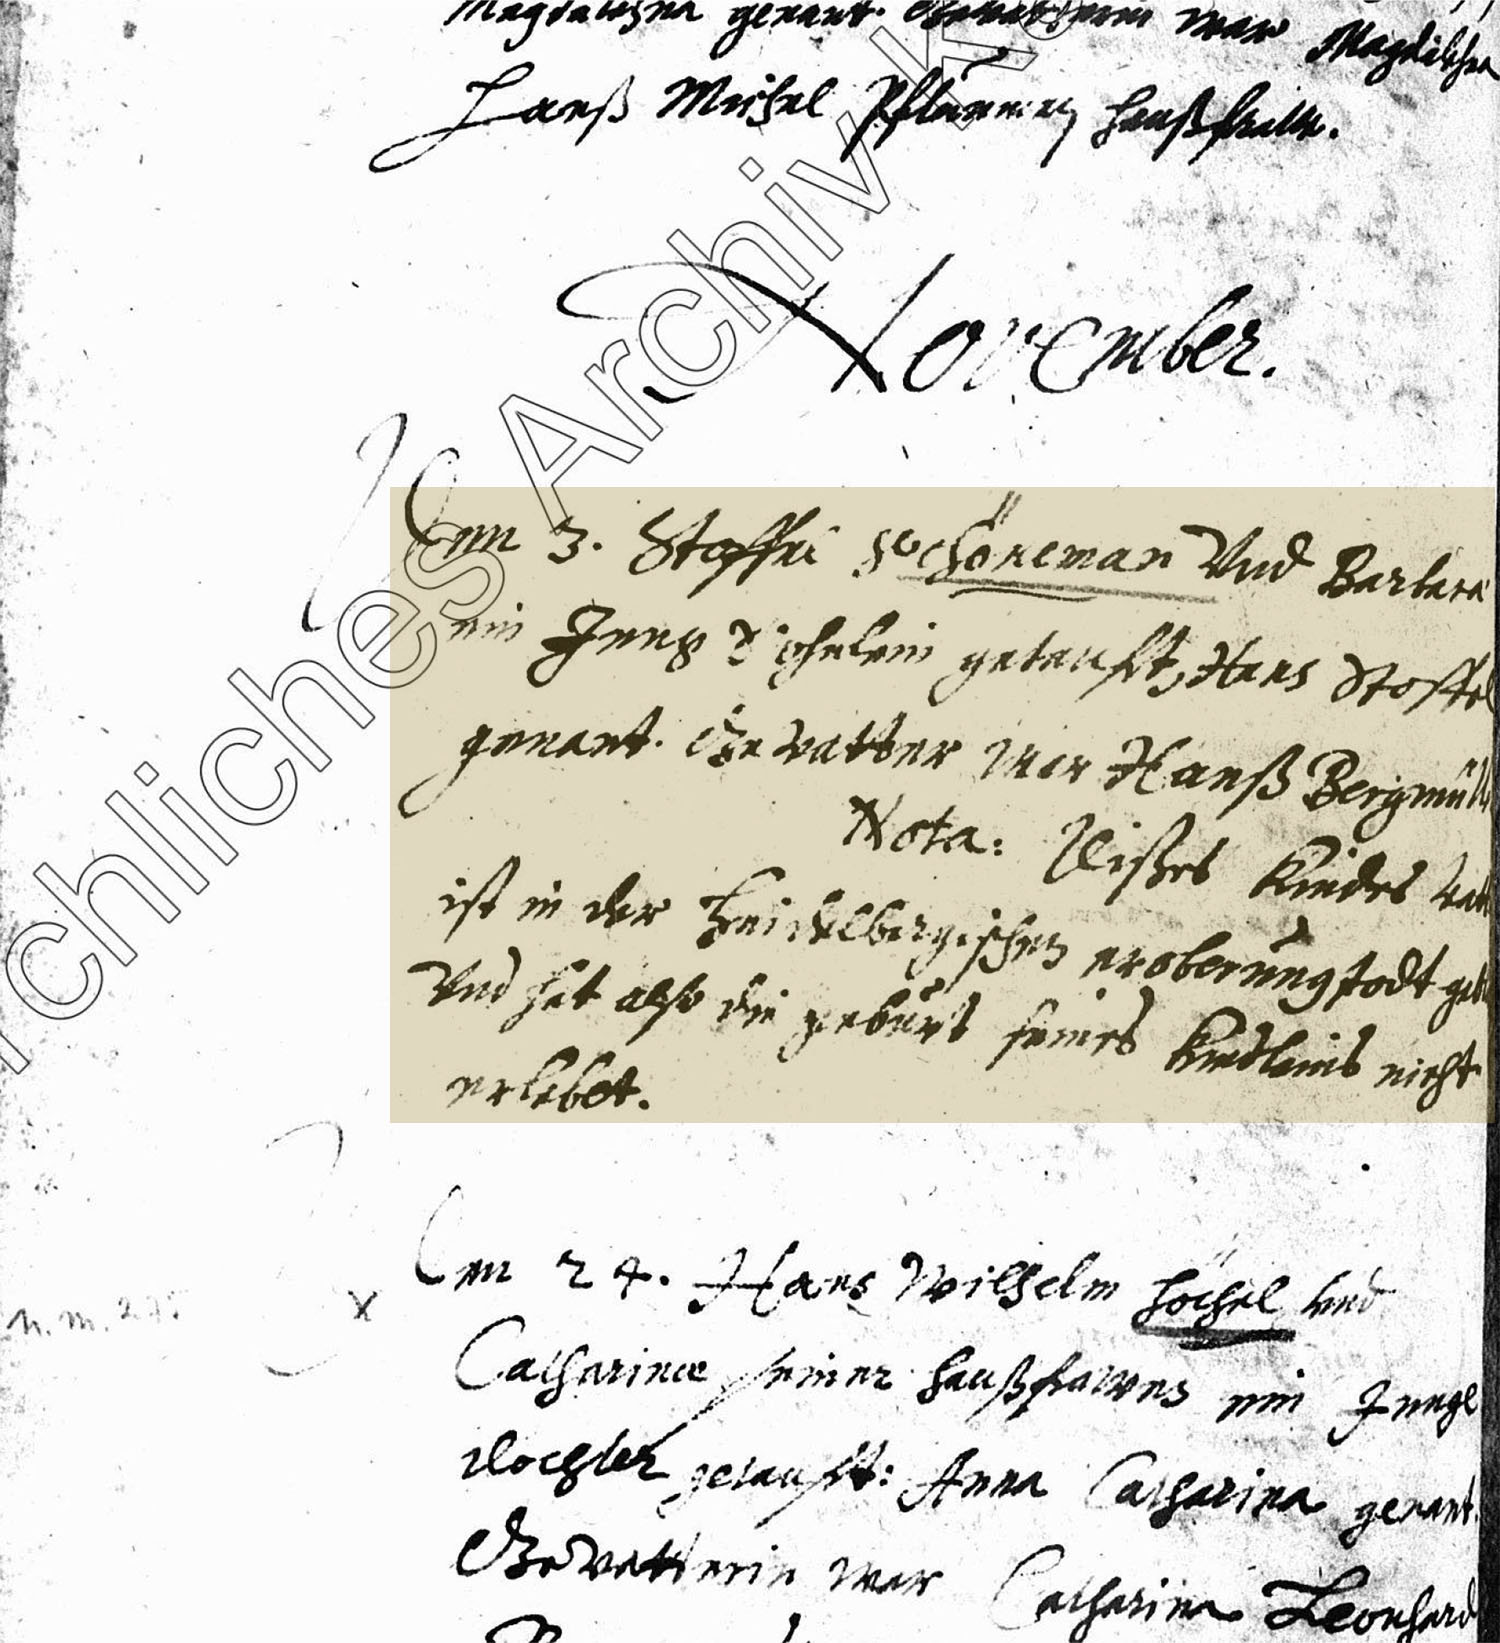 Magdalehna genant. Gevatterin war Magdalehna
Hanß Michel Pflaumen haußfraw.
November.
Den 3. Stoffei Schöneman Vnd Barbara
ein Jung Söhnlein getaufft, Hans Stoffel
genant. Gevatter war Hanß Bergmüll
Nota: Dißes Kindes vatt
ist in der Heidelbergischen eroberung todt geb
Vnd hat also die geburt seines Kindleins nicht
erlebet.
Den 24. Hans Wilhelm Höchel vnd
Catharinæ seiner haußfrawen ein Junge
Dochter getaufft: Anna Catharina genant.
Gevatterin war Catharina Leonhard
n. m. 275
x
rchliches Archiv K